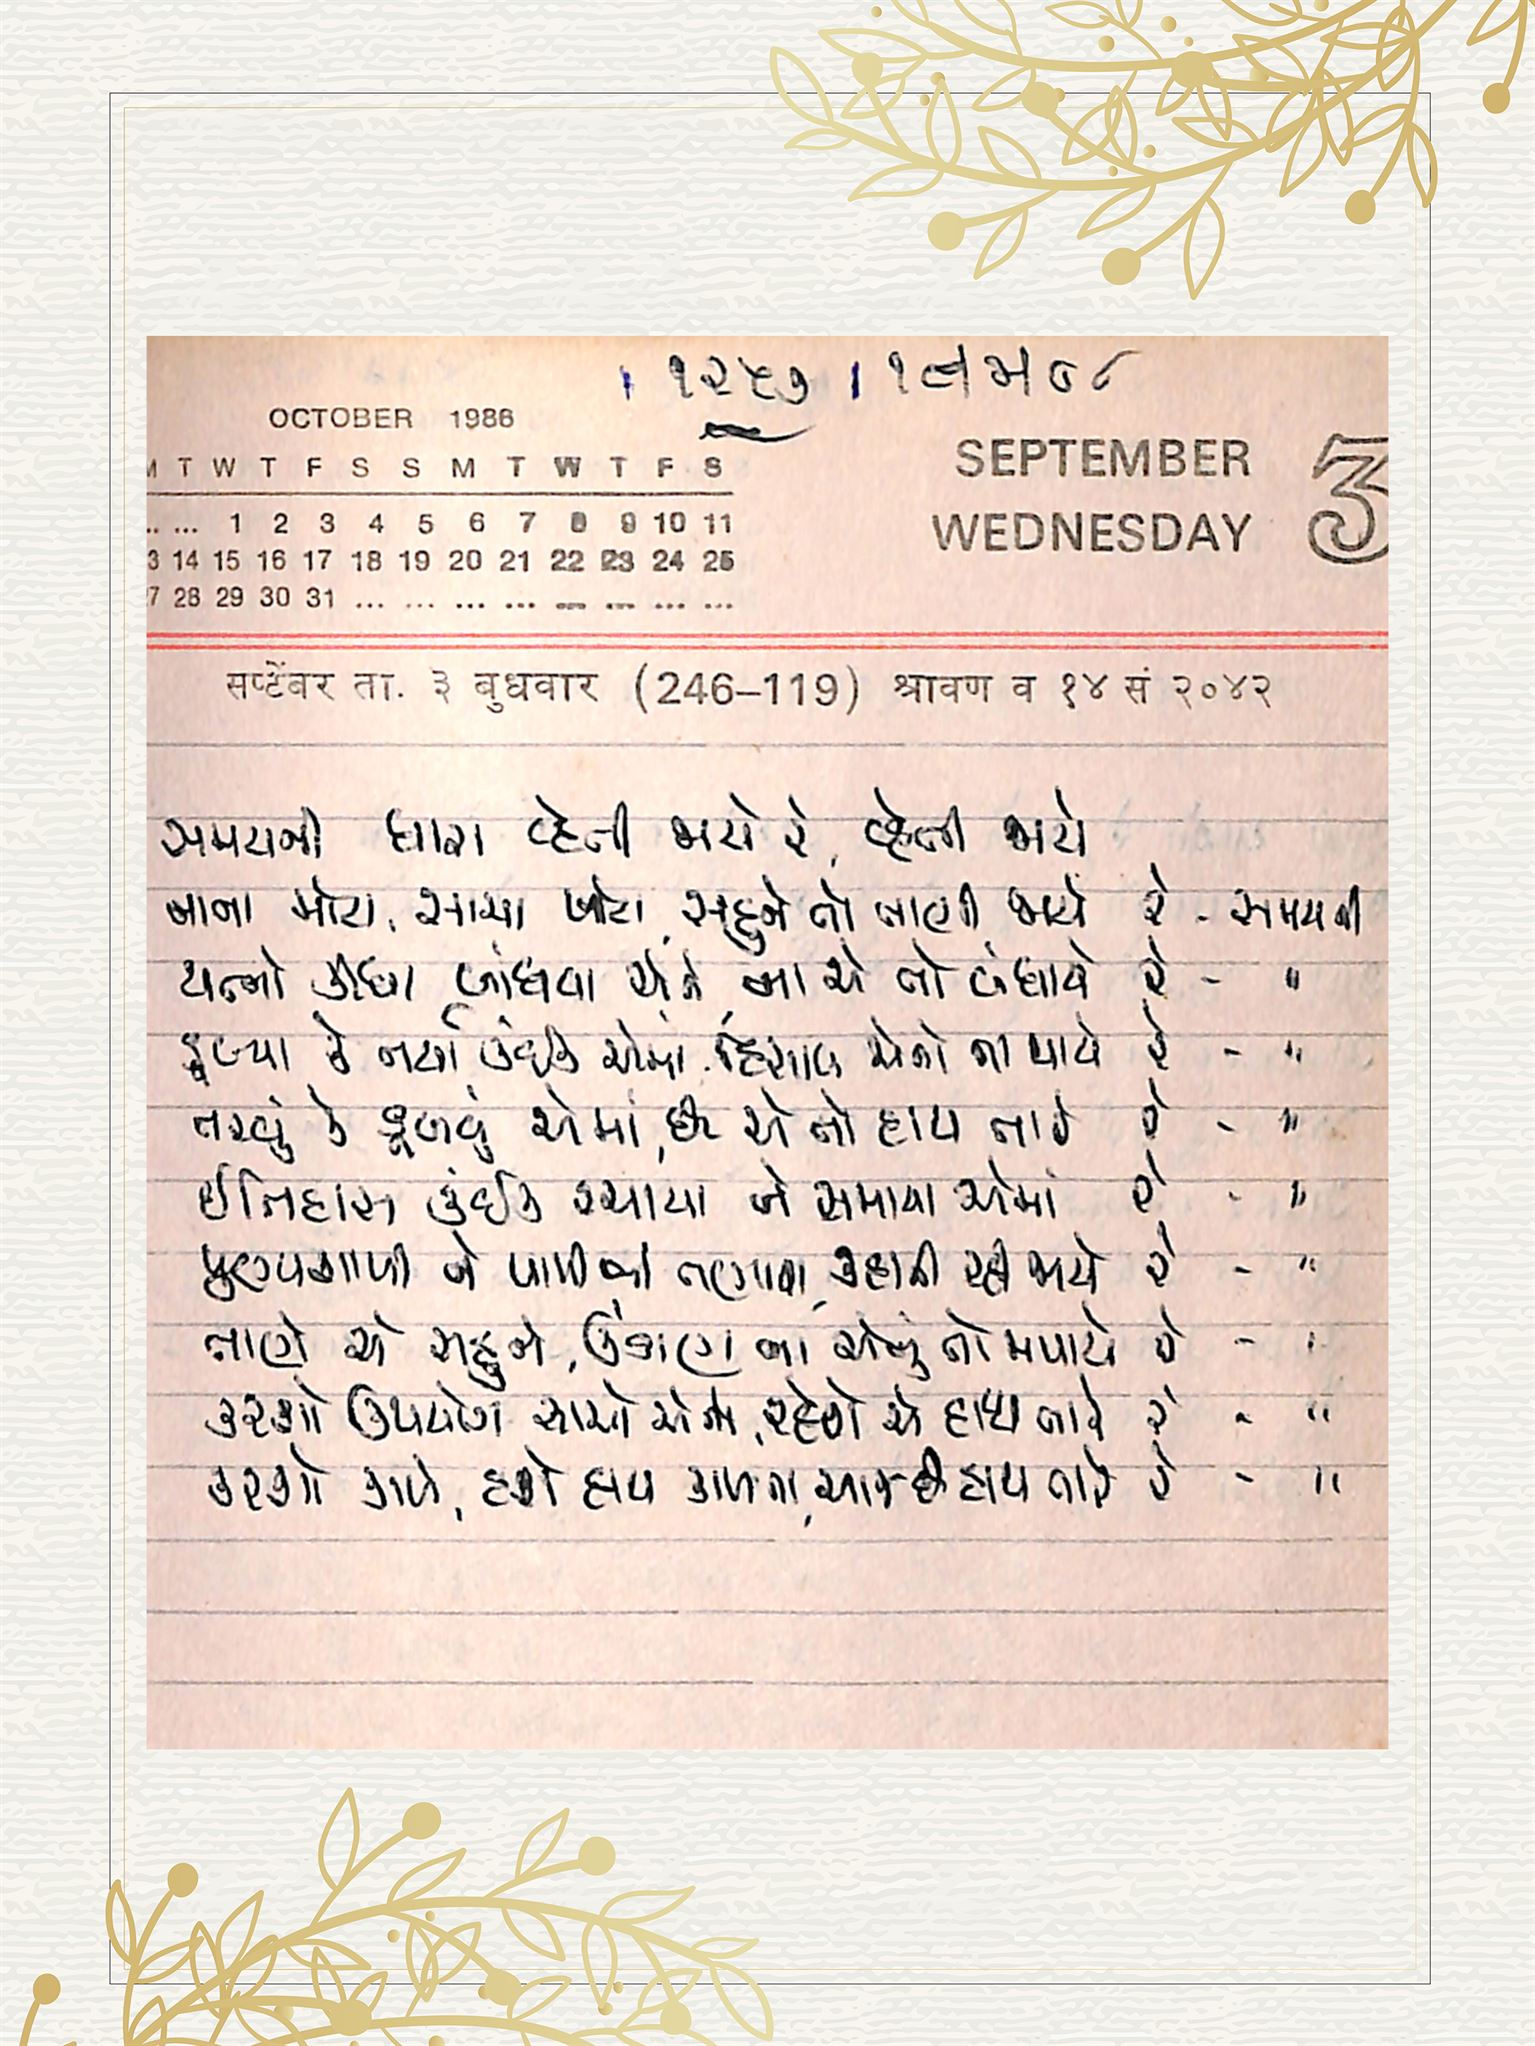 । १२५७ ।
OCTOBER 1986
M T W T F S S M T W T F S
.. ... 1 2 3 4 5 6 7 8 9 10 11
3 14 15 16 17 18 19 20 21 22 23 24 25
7 28 29 30 31 ... ... ... ... ... ... ... ...
SEPTEMBER
WEDNESDAY 3
सप्टेंबर ता. ३ बुधवार (246–119) श्रावण व १४ सं २०४२
સમયની ધારા વ્હેતી જાયે રે, વ્હેતી જાયે
નાના મોટા, સાચા ખોટા, સહુને તો તાણતી જાયે રે - સમયની
યત્નો કીધા બાંધવા એને, ના એ તો બંધાયે રે - "
ડૂબ્યા કે તર્યા કંઈક એમાં, હિસાબ એનો ના થાયે રે - "
તરવું કે ડૂબવું એમાં, છે એ તો હાથ તારે રે - "
ઈતિહાસ કંઈક રચાયા ને સમાયા એમાં રે - "
પુણ્યશાળી ને પાપી તણાયા, કહાની રહી જાયે રે - "
તાણે એ સહુને, ઊંડાણ ના એનું તો મપાયે રે - "
કરજો ઉપયોગ સાચો એનો, રહેશે એ હાથ તારે રે - "
કરશો કાલે, હશે હાથ કાળના, આજ છે હાથ તારે રે - "